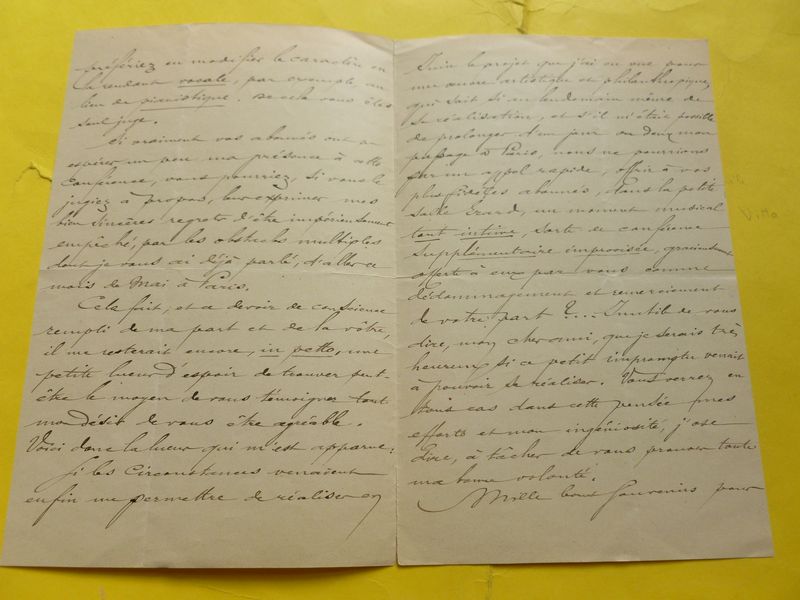 préfériez en modifier le caractère en
la rendant vocale, par exemple, au
lieu de pianistique. De cela vous êtes
seul juge.
Si vraiment vos abonnés ont pu
espérer un peu ma présence à cette
conférence, vous pourriez, si vous le
jugiez à propos, leur exprimer mes
bien sincères regrets d'être impérieusement
empêché, par les obstacles multiples
dont je vous ai déjà parlé, d'aller ce
mois de Mai à Paris.
Cela fait, et ce devoir de conscience
rempli de ma part et de la vôtre,
il me resterait encore, in petto, une
petite lueur d'espoir de trouver peut-
être le moyen de vous témoigner tout
mon désir de vous être agréable.
Voici donc la lueur qui m'est apparue:
Si les circonstances venaient
enfin me permettre de réaliser en
Juin le projet que j'ai en vue pour
une œuvre artistique et philanthropique,
qui sait si au lendemain même de
sa réalisation, et s'il m'était possible
de prolonger d'un jour ou deux mon
passage à Paris, nous ne pourrions
par un appel rapide, offrir à vos
plus fidèles abonnés, dans la petite
salle Erard, un moment musical
tout intime, sorte de conférence
supplémentaire improvisée, gracieusement
offerte à eux par vous comme
dédommagement et remerciement
de votre part ?.... Inutile de vous
dire, mon cher ami, que je serais très
heureux si ce petit impromptu venait
à pouvoir se réaliser. Vous verrez en
tous cas dans cette pensée mes
efforts et mon ingéniosité, j'ose
dire, à tâcher de vous prouver toute
ma bonne volonté.
Mille bons souvenirs pour